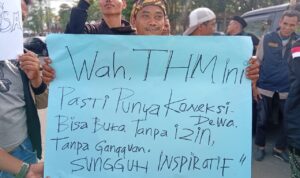 Wah, THM ini
Pasti Punya Koneksi
Dewa.
Bisa Buka Tanpa izin,
Tanpa Gangguan.
SUNGGUH INSPIRATIF"